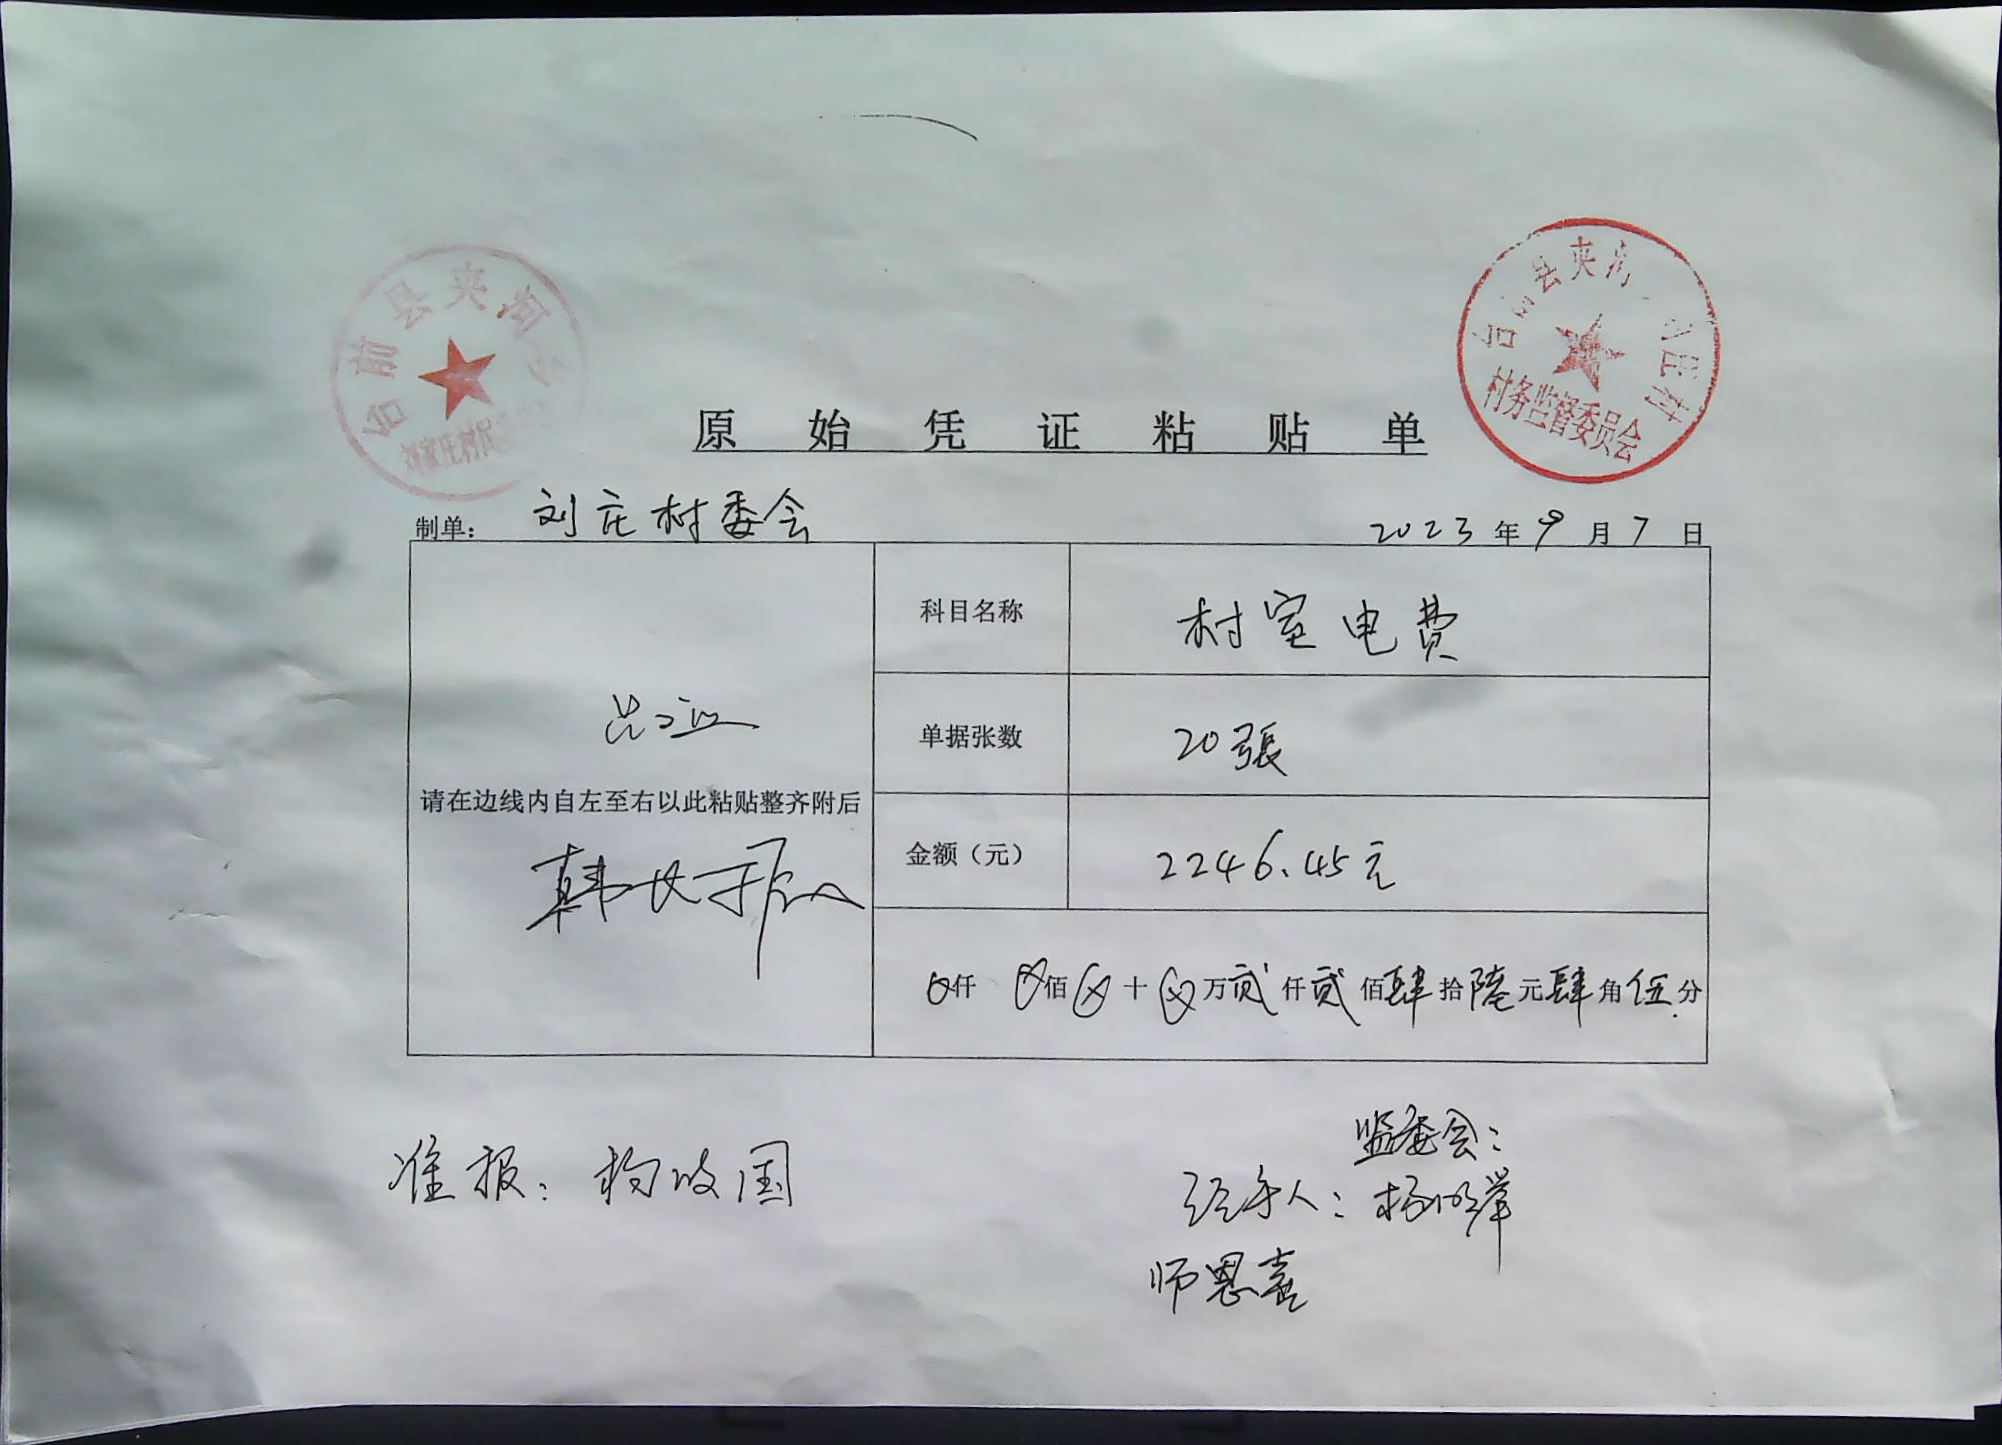 台前县夹河
刘家庄村民
台 县夹河 庄村
村务监督委员会
原始凭证粘贴单
制单： 刘庄村委会 2023年9月7日
科目名称 村室电费
单据张数 20張
请在边线内自左至右以此粘贴整齐附后
金额（元） 2246.45元
0仟 0佰 0十 0万贰仟贰佰肆拾陆元肆角伍分
监委会：
准报：杨岐国
经手人：杨明举
师恩喜